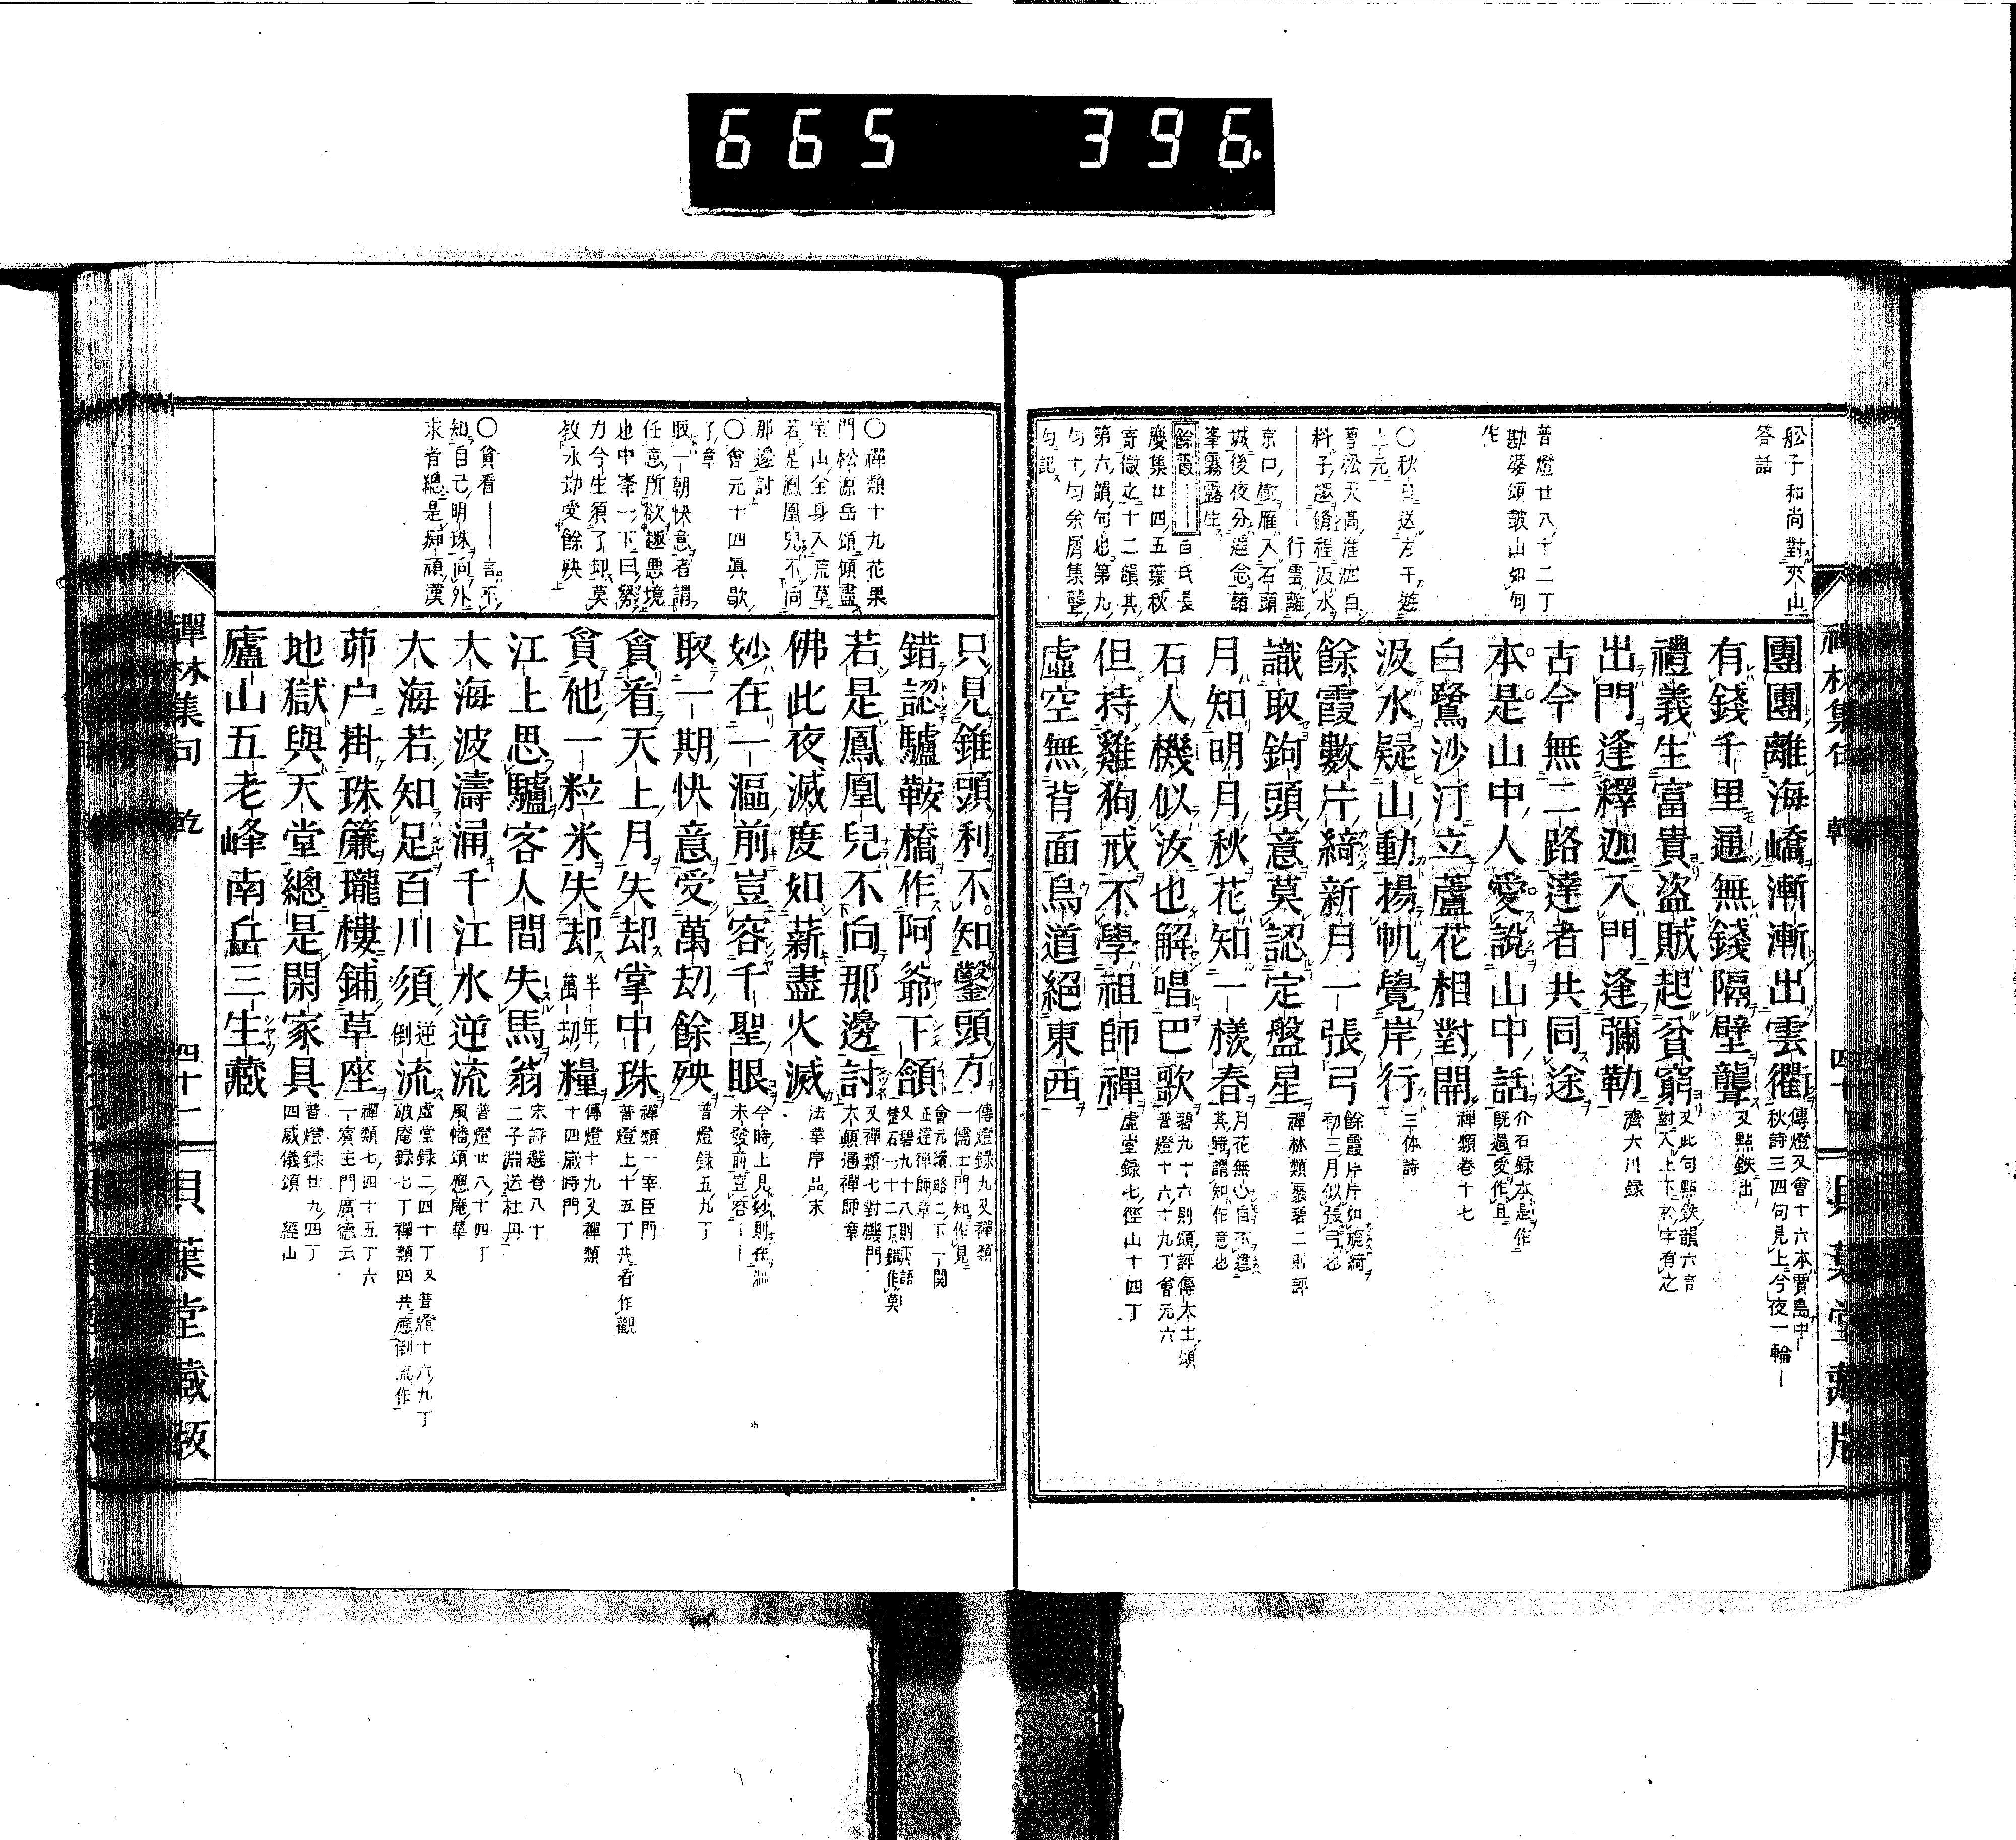 665 396.
舩子和尚對夾山
答話
普燈廿八ノ十二丁
勘婆頌皷山如句
作
〇秋日送方干遊
上元
曹松天高淮泗白
料子趨脩程汲水
——行雲離
京口ノ樹鴈入石頭
城後夜分遥念諸
峯霧露生
餘霞——白氏長
慶集廿四ノ五葉秋
寄微之十二韻其
第六ノ韻ノ句也第九ノ
匀十ノ匀余屑集聱
匀記ス
團團離海嶠漸漸出雲衢
傳燈又會十六本賈島中
秋詩三四句見上今夜一輪
有錢千里通無錢隔壁聾
又點鉄出
禮義生富貴盗賊起貧窮
又此句點鉄韻六言
對入上下於字有之
出門逢釋迦入門逢彌勒
濟大川録
古今無二路達者共同途
本是山中人愛說山中話
介石録本是作
既過愛作且
白鷺沙汀立蘆花相對開
禪類卷十七
汲水疑山動揚帆覺岸行
三体詩
餘霞數片綺新月一張弓
餘霞片片如旋綺
初三月似張弓也
識取鉤頭意莫認定盤星
禪林類聚碧二則評
月知明月秋花知一樣春
月花無心自不違
其時謂知作意也
石人機似汝也解唱巴歌
碧九十六則頌評傳大士頌
普燈十六十九丁會元六
但持雞狗戒不學祖師禪
虚堂録七徑山十四丁
虛空無背面鳥道絕東西
四十
貝葉堂藏版
〇禪類十九花果
門松源岳頌傾盡
宝山全身入荒草
若是鳳凰兒不向
那邊討
〇會元十四真歇
了章
取一朝快意者謂
任意所欲趣悪境
也中峯一ノ下曰努
力今生須了却莫
教永劫受餘殃
〇貪看——言不
知自己ノ明珠向外
求者總是痴頑漢
只見錐頭利不知鑿頭方
傳燈録九又禪類
一儒士門知作見
錯認驢鞍橋作阿爺下頷
會元續略二下一関
正達禪師章
又碧九十八則下語
楚石一十二丁錯作莫
若是鳳凰兒不向那邊討
又禪類七對機門
大顛通禪師章
佛此夜滅度如薪盡火滅
法華序品末
妙在一漚前豈容千聖眼
今時ノ上見妙則在漚
未發前豈容——
取一期快意受萬刧餘殃
普燈録五九丁
貪看天上月失却掌中珠
禪類一宰臣門
普燈上十五丁共看作觀
貪他一粒米失却
半年
萬刧
糧
傳燈十九又禪類
十四歳時門
江上思驢客人間失馬翁
宋詩選卷八十
二子淵送杜丹
大海波濤涌千江水逆流
普燈廿八十四丁
風幡頌應庵華
大海若知足百川須
逆
倒
流
虚堂録二四十丁又普燈十六九丁
破庵録七丁禪類四共應倒流作
茆户掛珠簾瓏樓鋪草座
禪類七四十五丁六
一賓主門廣德云
地獄與天堂總是閑家具
普燈録廿九四丁
四威儀頌 經山
廬山五老峰南岳三生藏
禪林集句 乾
四十一
貝葉堂藏版